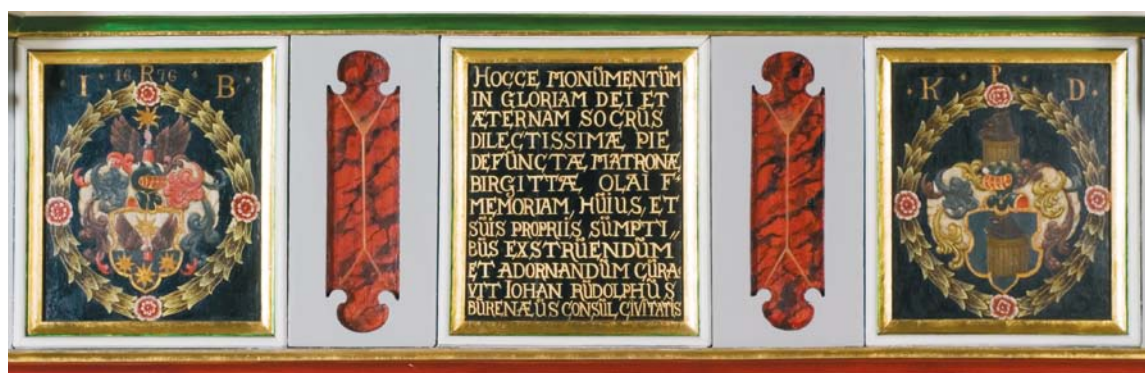 16 R 76
I B
HOCCE MONÜMENTÜM
IN GLORIAM DEI ET
ÆTERNAM SOCRÜS
DILECTISSIMÆ PIE
DEFÜNCTÆ MATRONÆ
BIRGITTÆ OLAI F
MEMORIAM, HÜIUS, ET
SÜIS PROPRIIS SÜMPTI,,
BÜS EXSTRÜENDÜM
ET ADORNANDÜM CÜRA-
VIT IOHAN RÜDOLPHÜS
BÜRENÆÜS CONSÜL CIVITATIS
P
K D